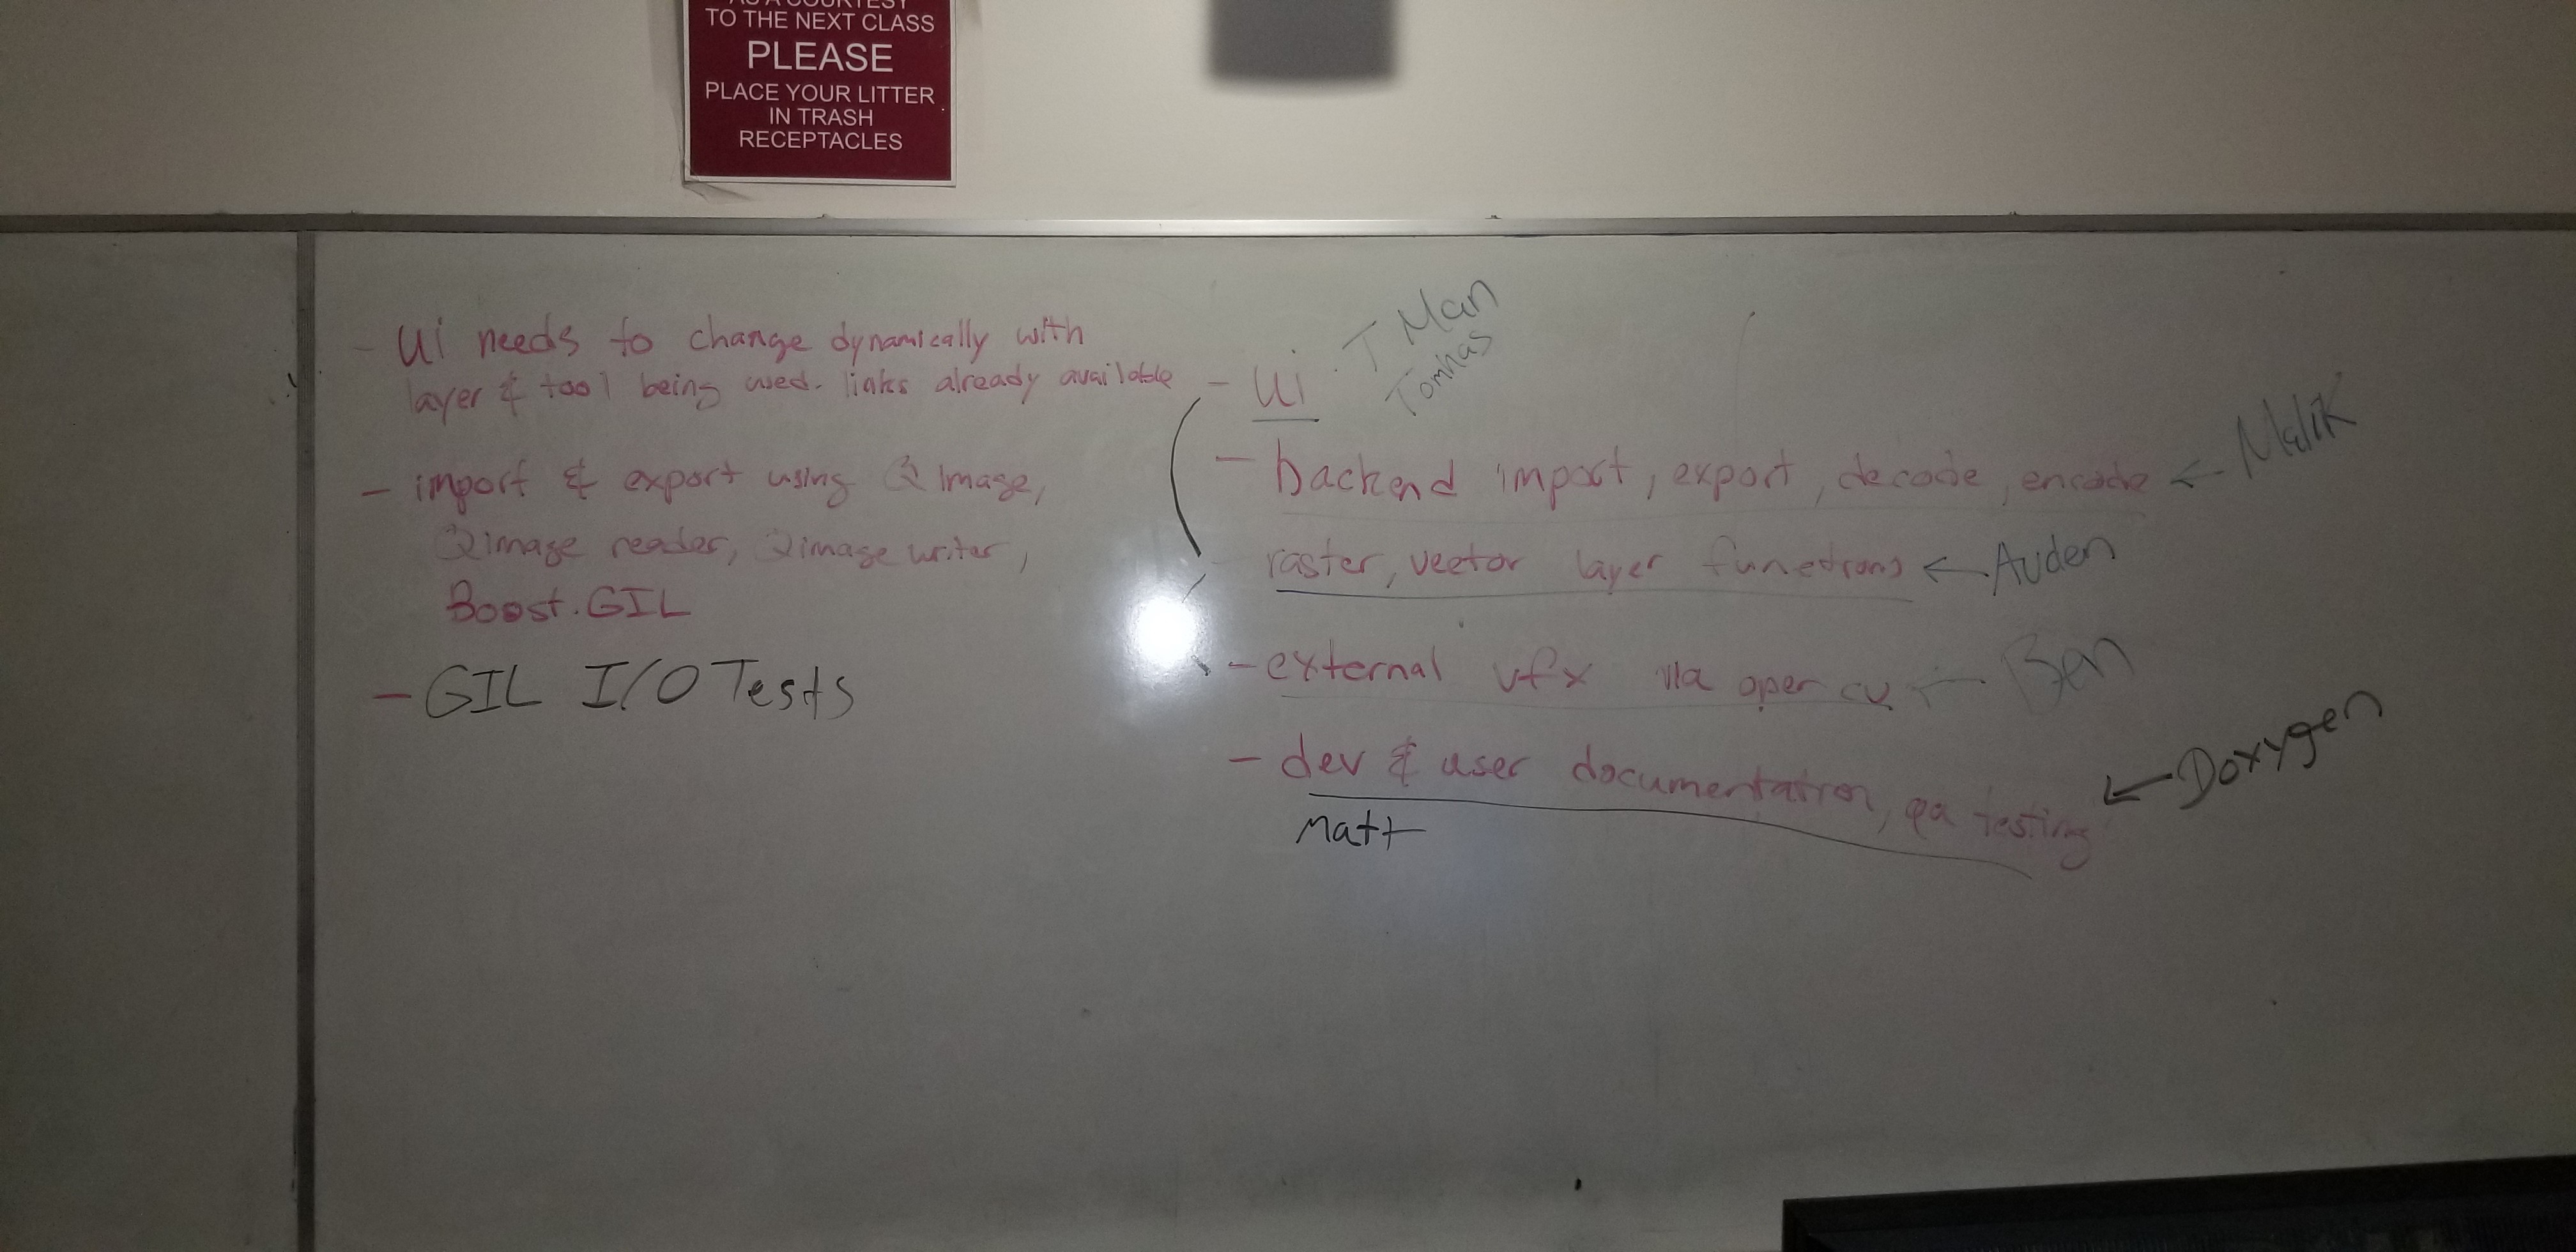 AS A COURTESY
TO THE NEXT CLASS
PLEASE
PLACE YOUR LITTER
IN TRASH
RECEPTACLES
- Ui needs to change dynamically with
layer & tool being used. links already available
- import & export using QImage,
Qimage reader, Qimage writer,
Boost.GIL
- GIL I/O Tests
- Ui
T Man
Tomhas
- backend import, export, decode, encode ← Malik
raster, vector layer functions ← Auden
- external vfx via open cv ← Ben
- dev & user documentation, qa testing ← Doxygen
Matt